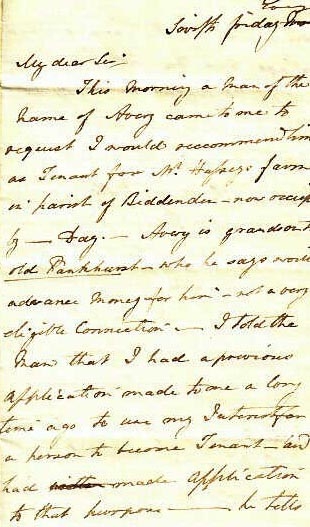 friday
My dear Sir
This morning a Man of the
name of Avery came to me to
request I would reccommend him
as Tenant for Mr. farm
in parish of Biddenden - now occup
by — Day. — Avery is grandson to
old Pankhurst - who he says would
advance Money for him - not a very
eligible Connection — I told the
Man that I had a previous
application made to me a long
time ago to use my Interest for
a person to become Tenant - and
had made Application
to that purpose — he tells